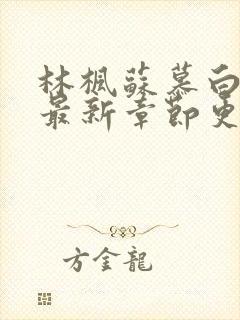 林楓蘇慕白
最新章節更
方金龍